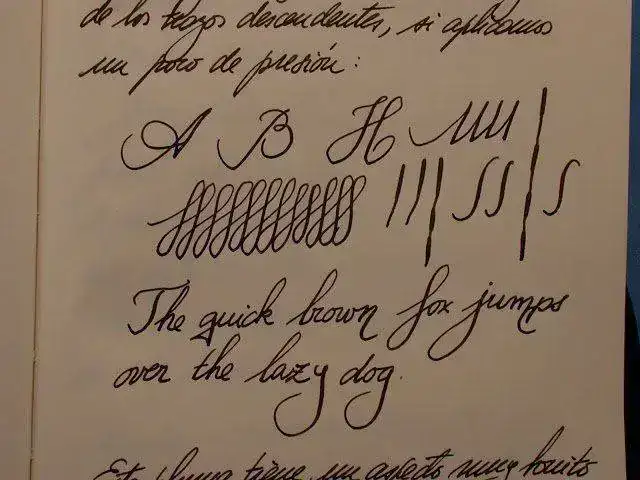 de los trazos descendentes, si aplicamos
un poco de presión:
A B H
The quick brown fox jumps
over the lazy dog.
Esta pluma tiene un aspecto muy bonito